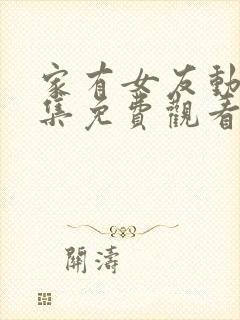 家有女友動
集免費觀看
關濤